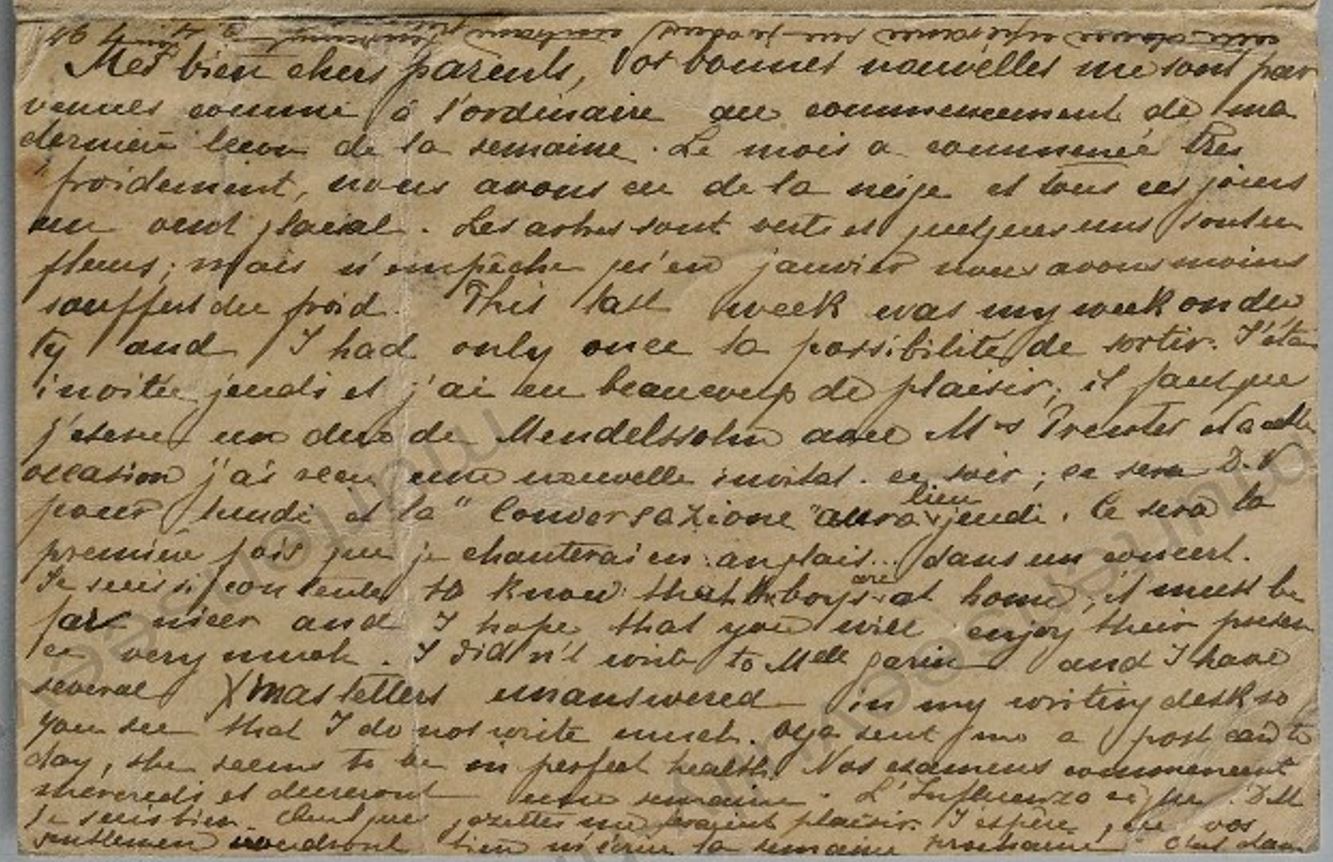 Mes bien chers parents, Vos bonnes nouvelles me sont par
venues comme à l'ordinaire au commencement de ma
dernière leçon de la semaine. Le mois a commencé très
froidement, nous avons eu de la neige et tous ces jours
un vent glacial. Les arbres sont verts et quelques uns sont en
fleurs; mais n'empêche qu'en janvier nous avons moins
souffert du froid. This last week was my week on du
ty and I had only once la possibilité de sortir. J'étais
invitée jeudi et j'ai eu beaucoup de plaisir; il faut que
j'exerce un duo de Mendelssohn avec Mrs et à cette
occasion j'ai reçu une nouvelle invitat. ce soir; ce sera D.V.
pour lundi et la "Conversazione" aura lieu jeudi. Ce sera la
première fois que je chanterai en anglais... dans un concert.
Je suis si contente to know that the boys are at home, it must be
far nicer and I hope that you will enjoy their presen
ce very much. I didn't write to Mdlle and I have
several Xmas letters unanswered in my writing desk so
you see that I do not write much. Olga sent me a post card to
day, she seems to be in perfect health. Nos examens commencent
mercredi et dureront une semaine. L'Influenza
Je suis bien. Quelques gazettes me feraient plaisir. J'espère que vos
voudront bien m'écrire la semaine prochaine